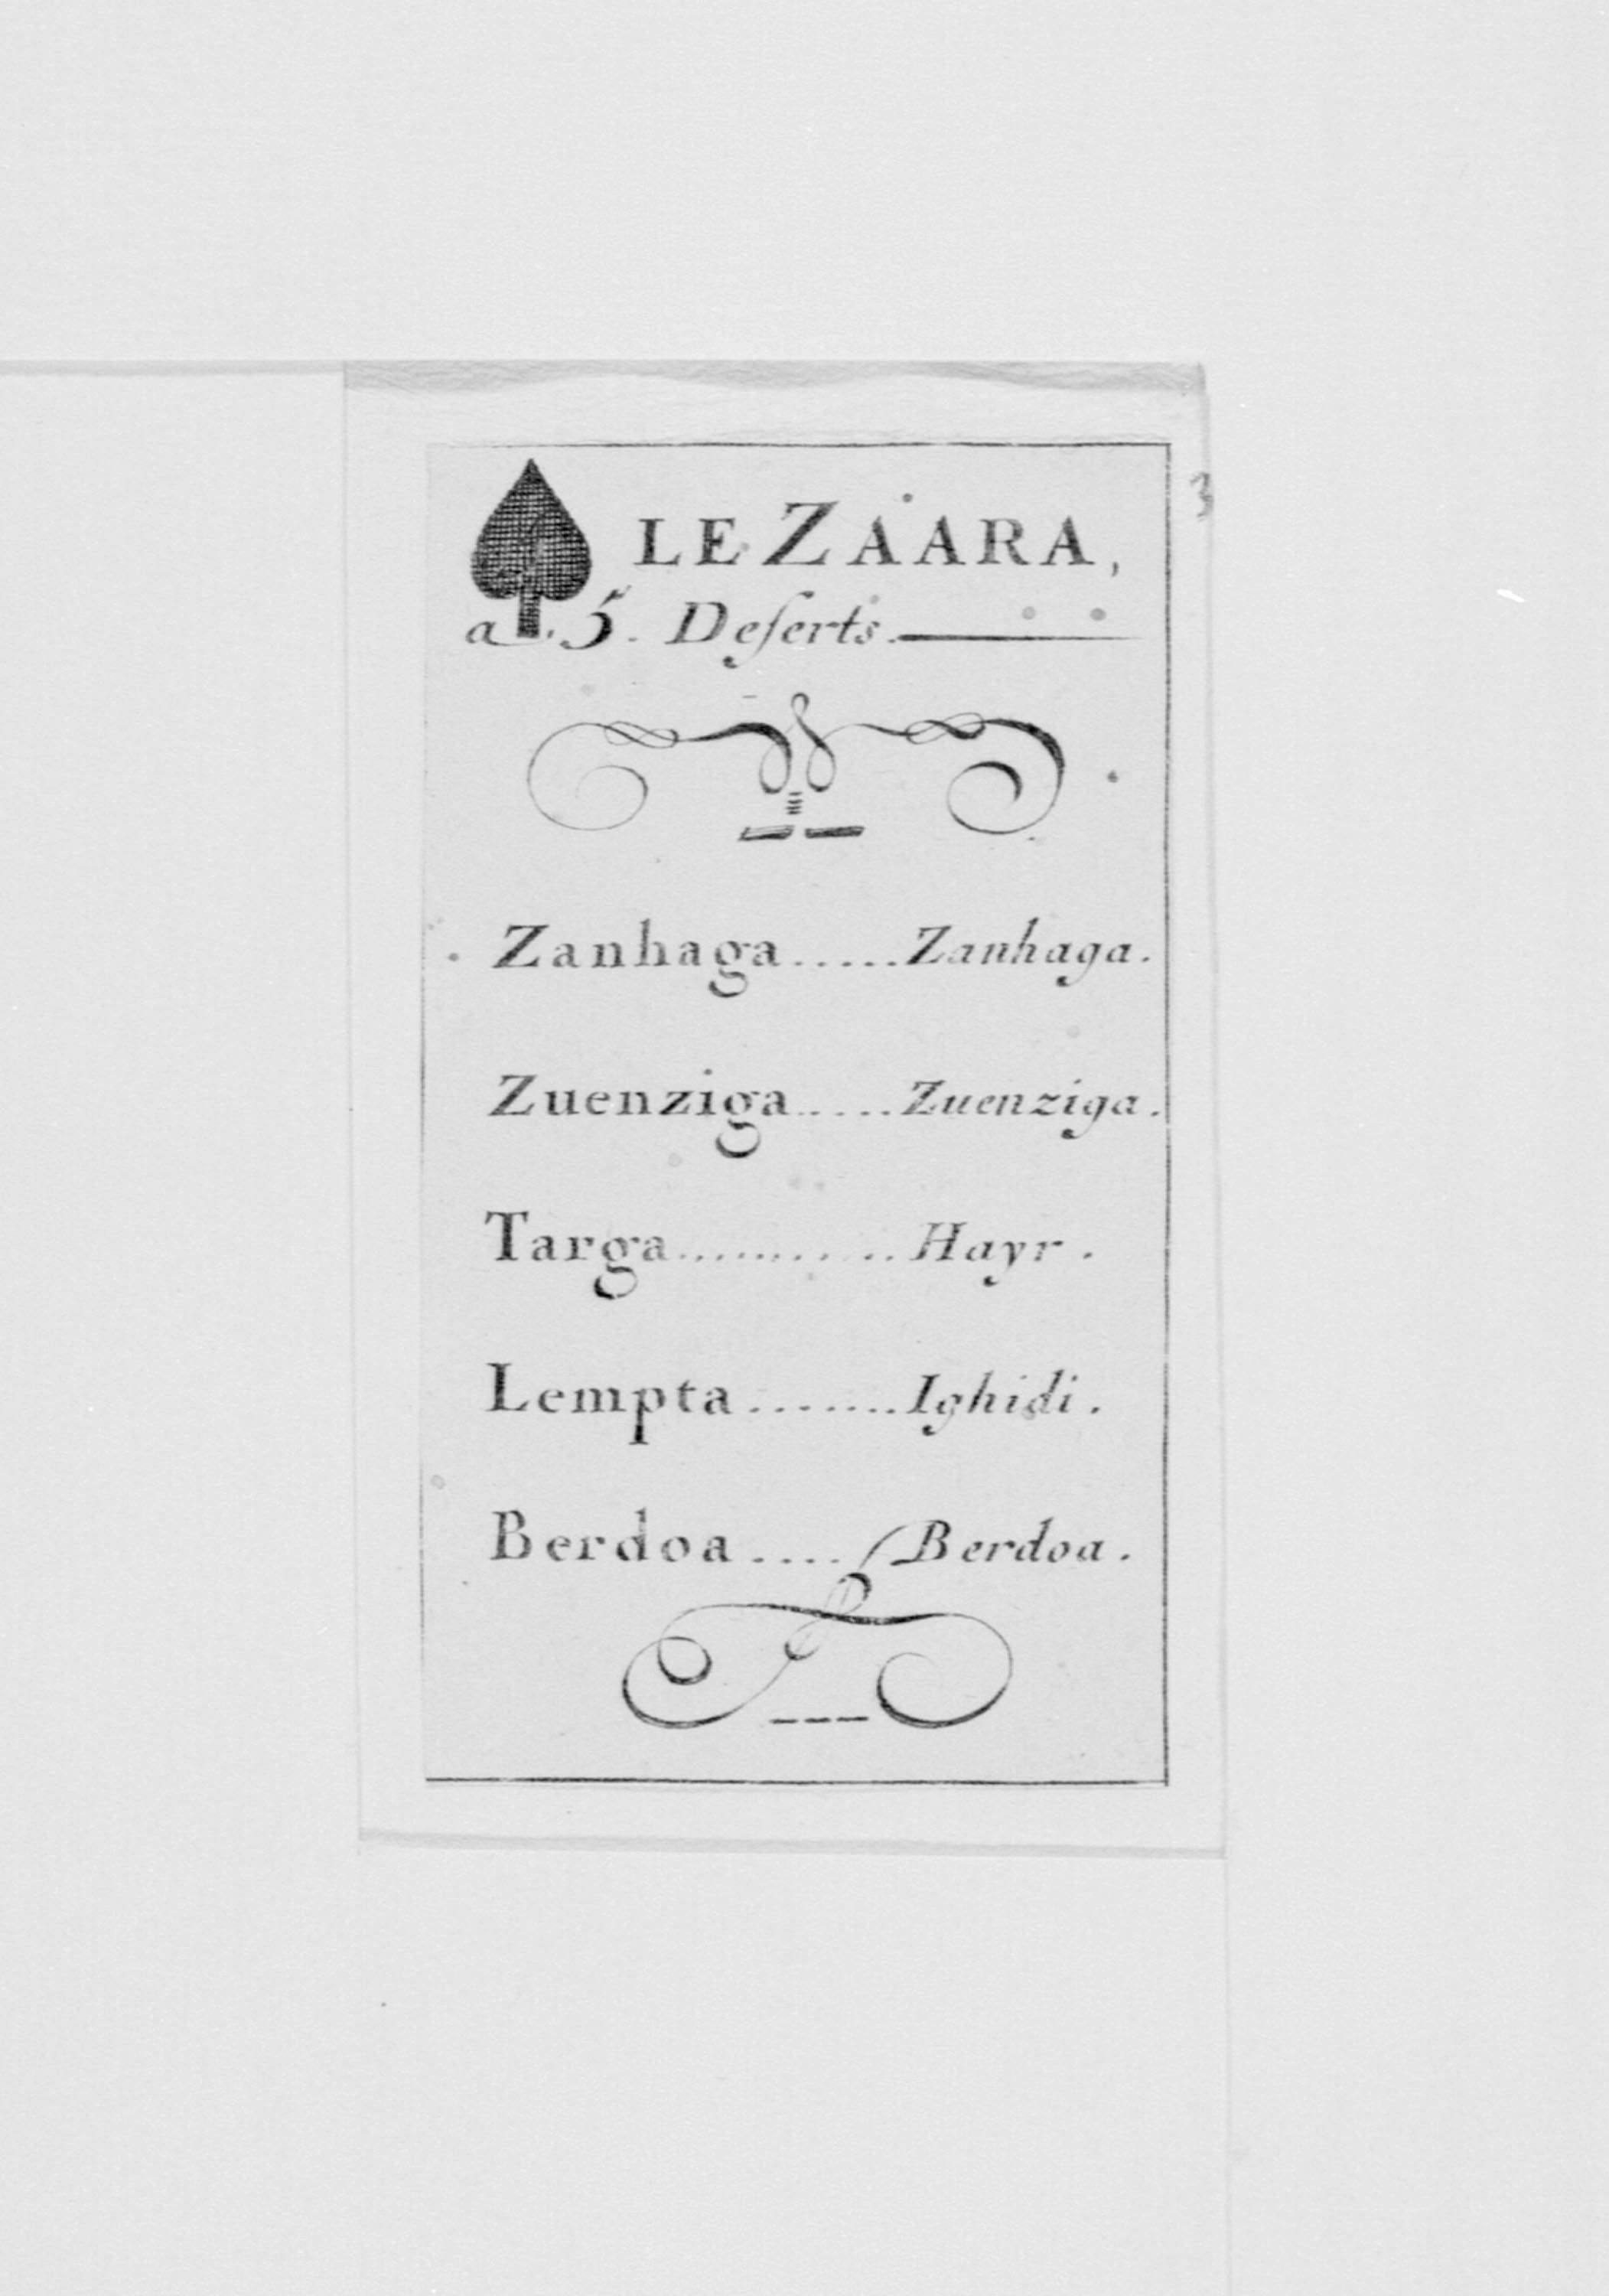 LE ZAARA,
3
a 5. Deſerts.
Zanhaga.....Zanhaga.
Zuenziga.....Zuenziga.
Targa...........Hayr.
Lempta........Ighidi.
Berdoa.....Berdoa.